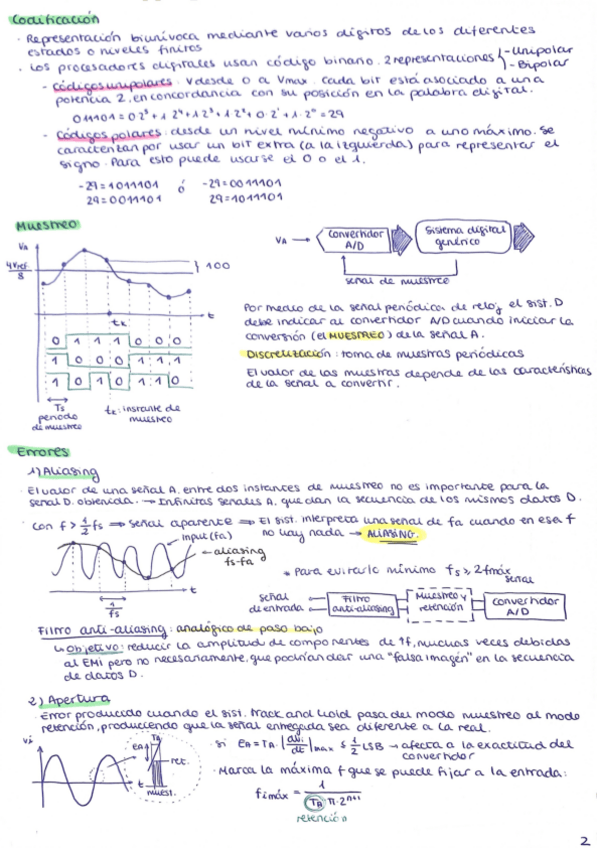 Codificación
· Representación biunívoca mediante varios dígitos de los diferentes
estados o niveles finitos
· Los procesadores digitales usan código binario. 2 representaciones
- Unipolar
- Bipolar
- Códigos unipolares: V desde 0 a Vmax. Cada bit está asociado a una
potencia 2, en concordancia con su posición en la palabra digital.
011101 = 0·2⁵ + 1·2⁴ + 1·2³ + 1·2² + 0·2¹ + 1·2⁰ = 29
- Códigos polares: desde un nivel mínimo negativo a uno máximo. Se
caracterizan por usar un bit extra (a la izquierda) para representar el
signo. Para esto puede usarse el 0 o el 1.
-29 = 1011101 ó -29 = 0011101
29 = 0011101 29 = 1011101
Muestreo
VA
4Vref
8
100
tk
t
0 1 1 1 0 0 0
1 0 0 0 1 1 1
1 0 1 0 1 1 0
Ts
periodo
de muestreo
tk: instante de
muestreo
VA
Convertidor
A/D
Sistema digital
genérico
señal de muestreo
Por medio de la señal periódica de reloj, el sist. D
debe indicar al convertidor A/D cuando iniciar la
conversión (el MUESTREO) de la señal A.
Discretización: toma de muestras periódicas
El valor de las muestras depende de las características
de la señal a convertir.
Errores
1) Aliasing
· El valor de una señal A. entre dos instantes de muestreo no es importante para la
señal D. obtenida. → Infinitas señales A. que dan la secuencia de los mismos datos D.
· Con f > 1/2 fs ⇒ señal aparente ⇒ El sist. interpreta una señal de fa cuando en esa f
no hay nada → ALIASING.
input (fa)
aliasing
fs-fa
t
1
fs
* Para evitarlo mínimo fs ≥ 2fmáx
señal
señal
de entrada
Filtro
anti-aliasing
Muestreo y
retención
Convertidor
A/D
Filtro anti-aliasing: analógico de paso bajo
↳ Objetivo: reducir la amplitud de componentes de ↑f, muchas veces debidas
al EMI pero no necesariamente, que podrían dar una "falsa imagen" en la secuencia
de datos D.
2) Apertura
· Error producido cuando el sist. track and hold pasa del modo muestreo al modo
retención, produciendo que la señal entregada sea diferente a la real.
Vi
t
EA
TA
ret.
muest.
· Si EA = TA · |dVi/dt|max ≤ 1/2 LSB → afecta a la exactitud del
convertidor
· Marca la máxima f que se puede fijar a la entrada:
fimáx = 1 / (TA · π · 2ⁿ⁺¹)
retención
2